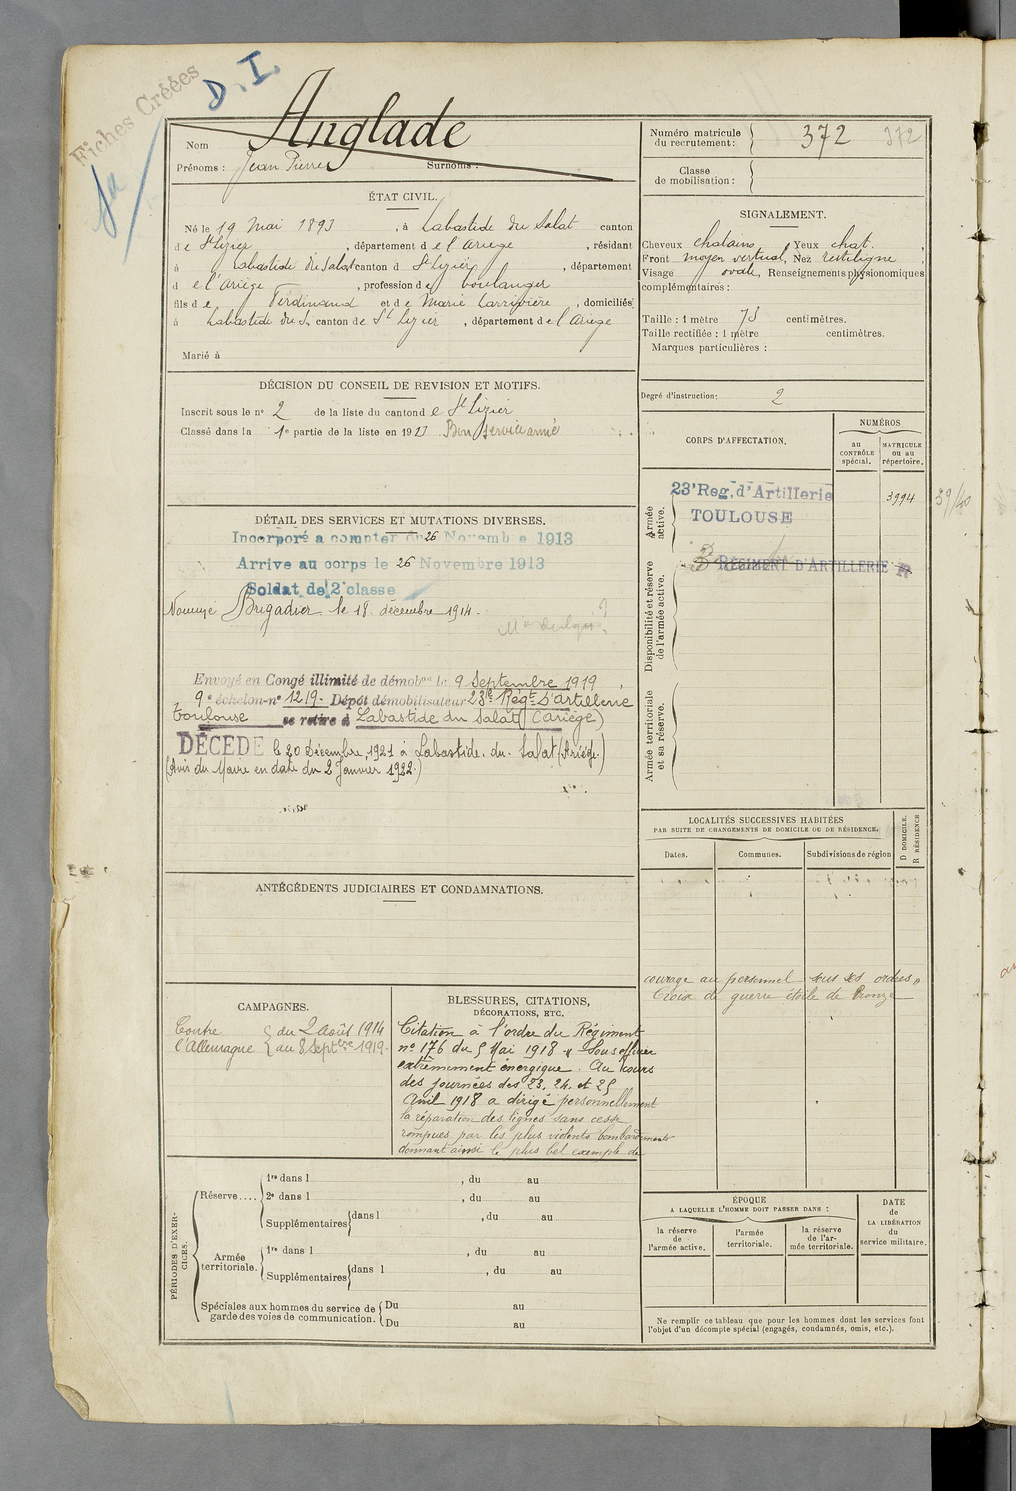 Fiches Créées
D. I.
Anglade
Nom
Prénoms : Jean Pierre Surnoms :
Numéro matricule
du recrutement : 372 372
Classe
de mobilisation :
ÉTAT CIVIL.
Né le 19 Mai 1893, à Labastide du Salat canton
de St Lizier, département de l'Ariège, résidant
à Labastide du Salat canton d St Lizier, département
d e l'Ariège, profession de boulanger
fils de Ferdinand et de Marie Larrivière, domiciliés
à Labastide du S, canton de St Lizier, département de l'Ariège
Marié à
SIGNALEMENT.
Cheveux chatains, Yeux chat.,
Front moyen vertical, Nez rectiligne,
Visage ovale, Renseignements physionomiques
complémentaires :
Taille : 1 mètre 75 centimètres.
Taille rectifiée : 1 mètre centimètres.
Marques particulières :
Degré d'instruction : 2
DÉCISION DU CONSEIL DE REVISION ET MOTIFS.
Inscrit sous le n° 2 de la liste du canton de St Lizier
Classé dans la 1e partie de la liste en 1913 Bon service armé
DÉTAIL DES SERVICES ET MUTATIONS DIVERSES.
Incorporé a compter du 26 Novembre 1913
Arrive au corps le 26 Novembre 1913
Soldat de 2e classe
Nommé Brigadier le 18 décembre 1914.
Envoyé en Congé illimité de démobon le 9 Septembre 1919,
9e échelon n° 1219 - Dépôt démobilisateur 23e Régt D'artillerie
Toulouse se retire à Labastide du Salat (Ariège)
DÉCÉDÉ le 20 Décembre 1921 à Labastide. du. Salat (Ariège.)
(Avis du Maire en date du 2 Janvier 1922.)
CORPS D'AFFECTATION.
NUMÉROS
au
CONTRÔLE
spécial.
MATRICULE
ou au
répertoire.
Armée
active.
23e Reg. d'Artillerie
TOULOUSE
3994
39/40
Disponibilité et réserve
de l'armée active.
RÉGIMENT D'ARTILLERIE R
Armée territoriale
et sa réserve.
LOCALITÉS SUCCESSIVES HABITÉES
PAR SUITE DE CHANGEMENTS DE DOMICILE OU DE RÉSIDENCE.
Dates.
Communes.
Subdivisions de région
D DOMICILE.
R RÉSIDENCE
ANTÉCÉDENTS JUDICIAIRES ET CONDAMNATIONS.
CAMPAGNES.
Contre { du 2 Août 1914
l'Allemagne { au 8 Septbre 1919.
BLESSURES, CITATIONS,
DÉCORATIONS, ETC.
Citation à l'ordre du Régiment
n° 176 du 5 Mai 1918 « Sous officier
extrêmement énergique. Au cours
des journées des 23, 24 et 25
Avril 1918 a dirigé personnellement
la réparation des lignes sans cesse
rompues par les plus violents bombardements
donnant ainsi le plus bel exemple de
courage au personnel sous ses ordres »
Croix de guerre étoile de Bronze
PÉRIODES D'EXER-
CICES.
Réserve....
1re dans l , du au
2e dans l , du au
Supplémentaires { dans l , du au
Armée
territoriale.
1re dans l , du au
Supplémentaires { dans l , du au
Spéciales aux hommes du service de
garde des voies de communication.
Du au
Du au
ÉPOQUE
A LAQUELLE L'HOMME DOIT PASSER DANS :
la réserve
de
l'armée active.
l'armée
territoriale.
la réserve
de l'ar-
mée territoriale.
DATE
de
LA LIBÉRATION
du
service militaire.
Ne remplir ce tableau que pour les hommes dont les services font
l'objet d'un décompte spécial (engagés, condamnés, omis, etc.).